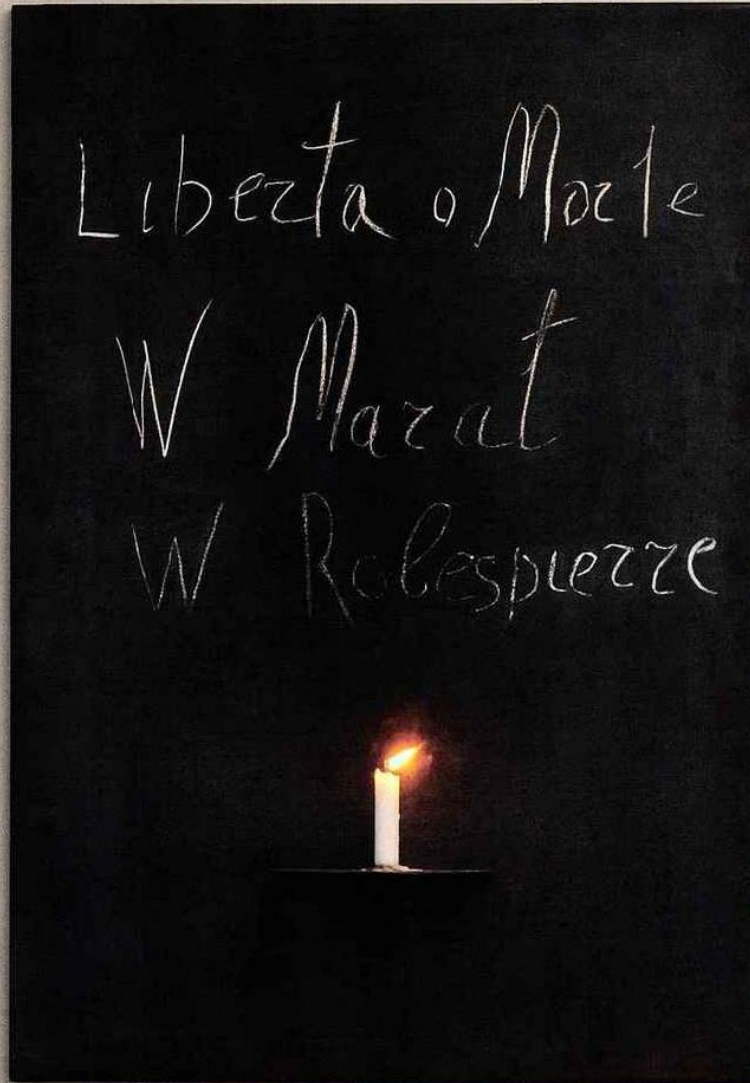 Liberta o Morte
W Marat
W Robespierre